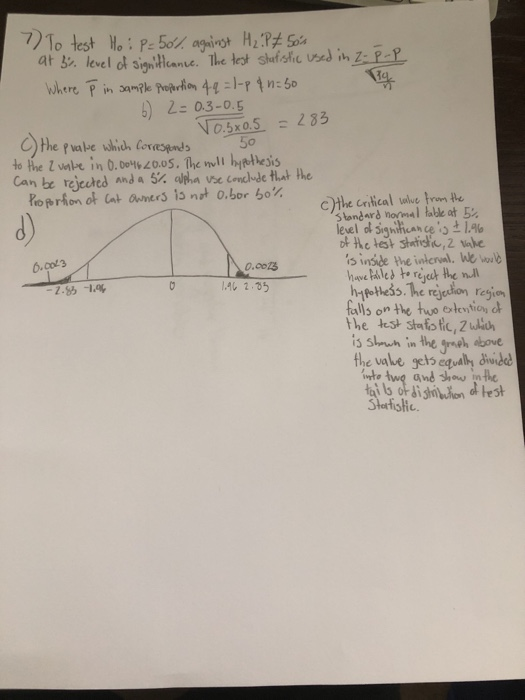 7) To test H₀: P=50% against H₂: P≠50%
at 5% level of significance. The test statistic used in Z = P̄-P / √(pq/n)
Where P̄ in sample proportion & q = 1-p & n=50
b) Z = 0.3-0.5 / √(0.5x0.5/50) = 2.83
c) the p value which corresponds
to the Z value in 0.0046<0.05. The null hypothesis
can be rejected and a 5% alpha use conclude that the
Proportion of cat owners is not 0.5 or 50%.
d)
0.0023
0.0023
-2.83 -1.96 0 1.96 2.83
c) the critical value from the
standard normal table at 5%
level of significance is ±1.96
of the test statistic, Z value
is inside the interval. We would
have failed to reject the null
hypothesis. The rejection region
falls on the two extention of
the test statistic, Z which
is shown in the graph above
the value gets equally divided
into two and show in the
tails of distribution of test
Statistic.